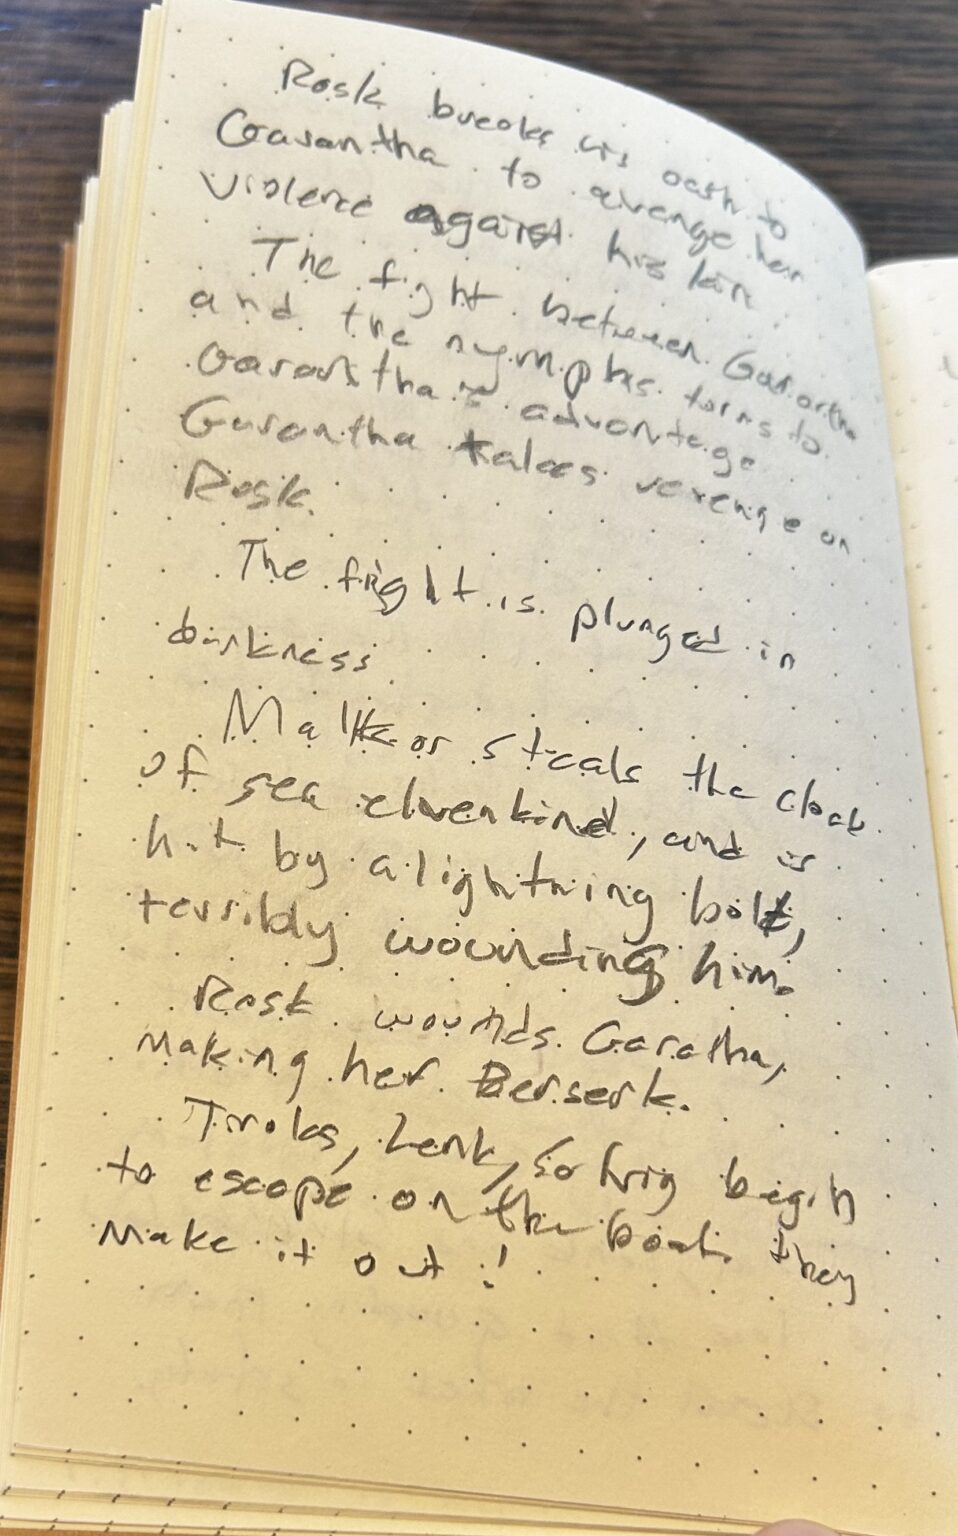 Rosk breaks his oath to
Garantha to avenge her
violence against his kin
The fight between Garantha
and the nymphs turns to
Garantha's advantage
Garantha takes revenge on
Rosk.
The fight is plunged in
darkness
Malkor steals the cloak
of sea elvenkind, and is
hit by a lightning bolt,
terribly wounding him.
Rosk wounds Garatha,
making her Berserk.
Lenk, begin
to escape on the boat. they
make it out!